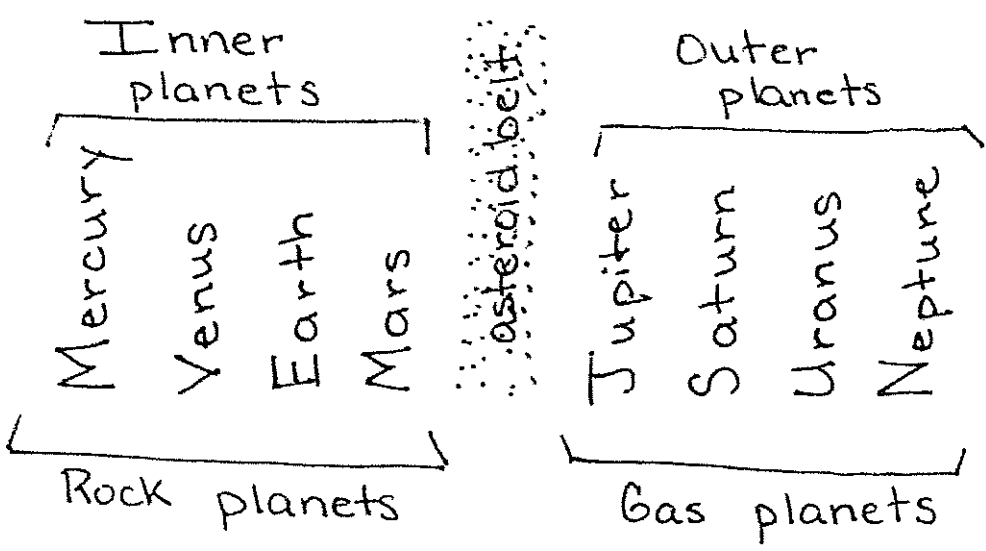 Inner
planets
Mercury
Venus
Earth
Mars
Rock planets
asteroid belt
Outer
planets
Jupiter
Saturn
Uranus
Neptune
Gas planets